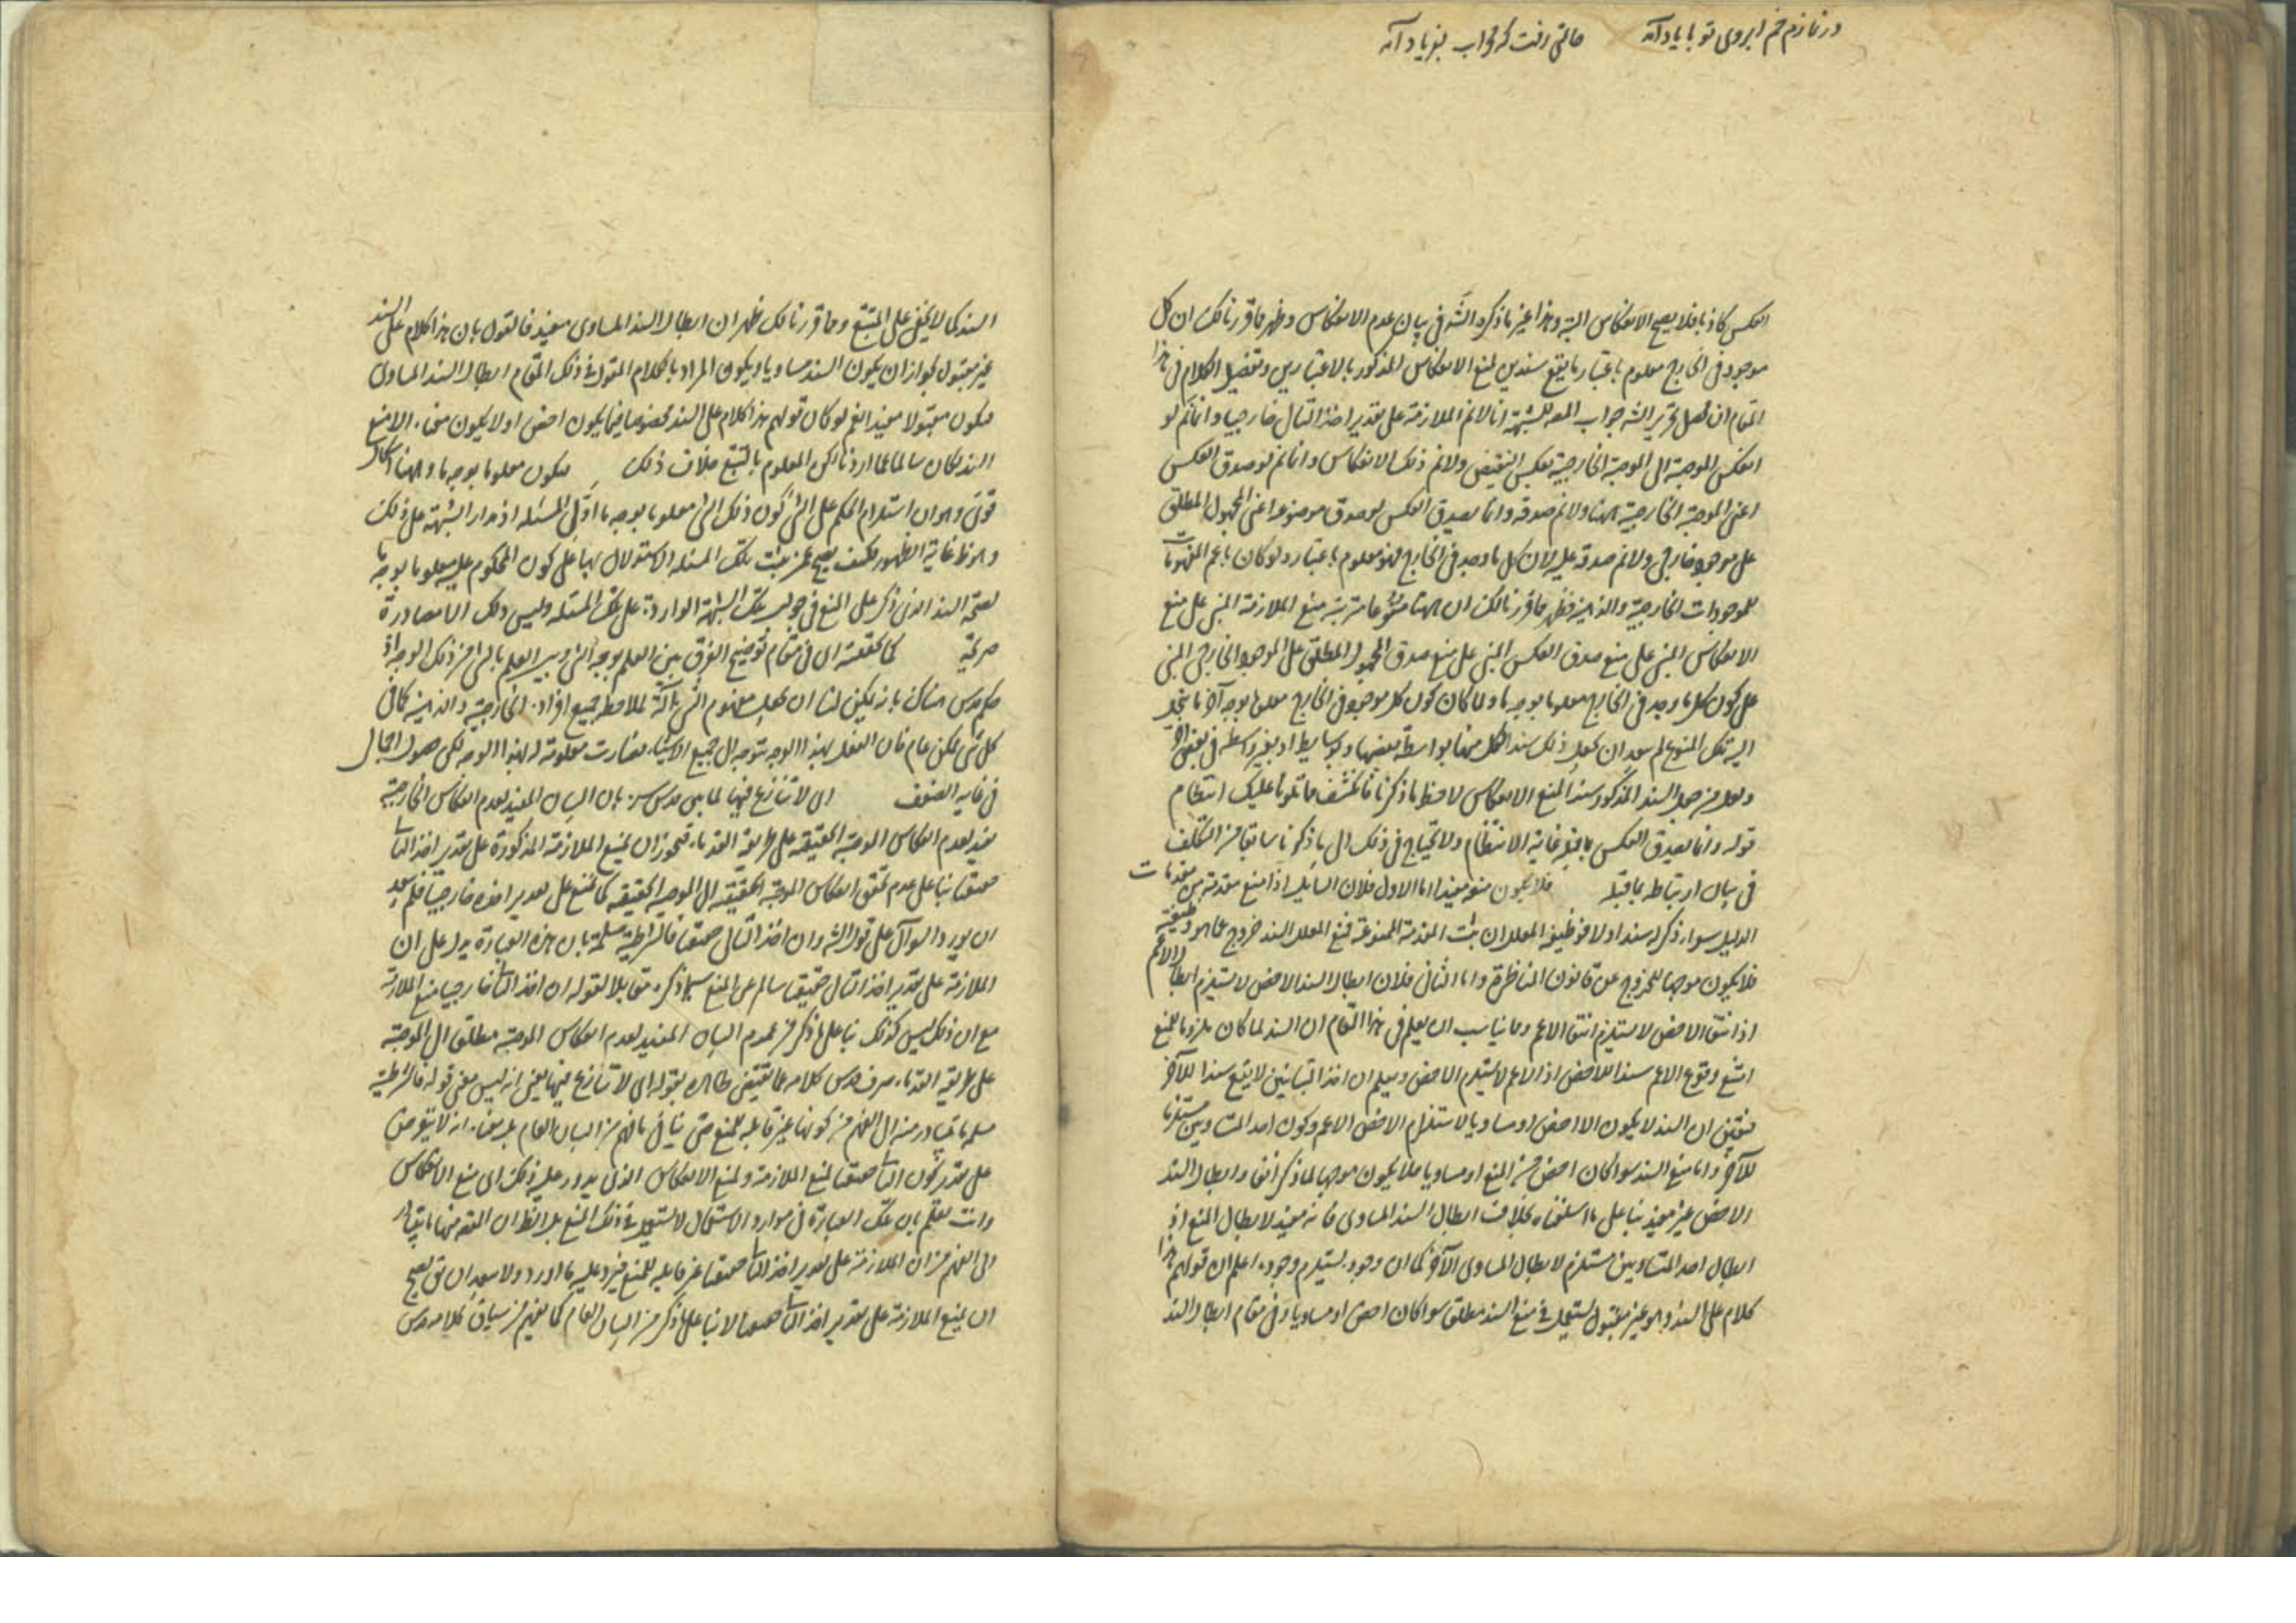 در نمازم خم ابروی تو با یاد آمد حالتی رفت که محراب بفریاد آمد
العكس كاذبا فلا يصح الانعكاس البتة وهذا غير ما ذكره الشه في بيان عدم الانعكاس وظهر مما قررنا لك ان كل
موجود في الخارج معلوم باعتبار ما يقع سندين لمنع الانعكاس المذكور بالاعتبارين وتفصيل الكلام في هذا
المقام ان محصل تحرير الشه جواب المصه للشبهة انا لانم الملازمة على تقدير اخذ التالى خارجيا وانما تم لو
انعكس الموجبة الى الموجبة الخارجية بعكس النقيض ولانم ذلك الانعكاس وانما تم لو صدق العكس
اعنى الموجبة الخارجية ههنا ولانم صدقه وانما يصدق العكس لو صدق موضوعه اعنى المجهول المطلق
على موجود خارجى ولانم صدقه عليه لان كل ما وجد في الخارج فهو معلوم باعتبار ولو كان باعم المفهومات
للموجودات الخارجية والذهنية فظهر مما قررنا لك ان ههنا منوعا مترتبة منع الملازمة المبنى على منع
الانعكاس المبنى على منع صدق العكس المبنى على منع صدق المجهول المطلق على الموجود الخارجى المبنى
على كون كل ما وجد في الخارج معلوما بوجه ما ولما كان كون كل موجود في الخارج معلوما بوجه آخر ما ينجر
اليه تلك المنوع لم يبعد ان يجعل ذلك سندا لكل منها بواسطة بعضها وبوسايط او بغير واسطة في بعض آخر
ولعل من جعل السند المذكور سندا لمنع الانعكاس لاحظ ما ذكرنا فانكشف مما تلونا عليك انتظام
قوله وانما يصدق العكس بما قبله غاية الانتظام ولا يحتاج في ذلك الى ما ذكرنا سابقا من التكلف
في بيان ارتباطه بما قبله فلا يكون منعه مفيدا اما الاول فلان السايل اذا منع مقدمة من مقدمات
الدليل سواء ذكر له سندا اولا فوظيفة المعلل ان يثبت المقدمة الممنوعة فمنع المعلل السند خروج عما هو وظيفته
فلا يكون موجبا للخروج عن قانون المناظرة واما الثانى فلان ابطال السند الاخص لا يستلزم ابطال الاعم
اذ انتفاء الاخص لا يستلزم انتفاء الاعم ومما يناسب ان يعلم في هذا المقام ان السند لما كان ملزوما للمنع
امتنع وقوع الاعم سندا للاخص اذ الاعم لا يستلزم الاخص ويعلم ان احد المتباينين لا يقع سندا للآخر
فتعين ان السند لا يكون الا اخص او مساويا لاستلزام الاخص الاعم وكون احد المتساويين مستلزما
للآخر واما منع السند سوا كان اخص من المنع او مساويا فلا يكون موجبا لما ذكر آنفا وابطال السند
الاخص غير مفيد بناء على ما اسلفناه بخلاف ابطال السند المساوى فانه مفيد لابطال المنع اذ
ابطال احد المتساويين مستلزم لابطال المساوى الآخر كما ان وجوده يستلزم وجوده اعلم ان قولهم هذا
كلام على السند وهو غير مقبول يستعمل في منع السند مطلقا سوا كان اخص او مساويا وفي مقام ابطال السند
السند كما لا يخفى على المتتبع ومما قررنا لك ظهر ان ابطال السند المساوى مفيد فالقول بان هذا كلام على السند
غير مقبول لجواز ان يكون السند مساويا ويكون المراد بالكلام المنقول في ذلك المقام ابطال السند المساوى
فيكون مقبولا مفيدا نعم لو كان قولهم هذا كلام على السند مخصوصا فيما يكون اخص او لا يكون معناه الا منع
السند لكان سالما عما اوردنا لكن المعلوم بالتتبع خلاف ذلك فيكون معلوما بوجه ما وههنا اشكال
قوى وهو ان استلزام الحكم على الشئ كون ذلك الشئ معلوما بوجه ما اول المسئله اذ مدار الشبهة على ذلك
وهو في غاية الظهور فكيف يصح عمن يثبت تلك المسئله الاستدلال بها على كون المحكوم عليه معلوما بوجه ما
لصحة السند الذى ذكر على المنع في جواب تلك الشبهة الواردة على تلك المسئله وليس ذلك الا مصادرة
صريحة كما حققته اى في مقام توضيح الفرق بين العلم بوجه الشئ وبين العلم بالشئ من ذلك الوجه اذ
حكم قدس هناك بانه يمكن لنا ان نجعل مفهوم الشئ مرآة لملاحظة جميع افراده الخارجية والذهنية كما في
كل شئ ممكن عام فان العقل بهذا الوجه يتوجه الى جميع الاشياء فصارت معلومة له بهذا الوجه لكن حصول اجمالى
في غاية الضعف اى لا تنازع فيها لما بين قدس سره بان البيان المفيد لعدم انعكاس الخارجية
يفيد عدم انعكاس الموجبة الحقيقية على طريقة القدماء فيجوز ان يمنع الملازمة المذكورة على تقدير اخذ التالى
حقيقيا بناء على عدم تحقق انعكاس الموجبة الحقيقية الى الموجبة الحقيقية كما يمنع على تقدير اخذه خارجيا فلم يبعد
ان يورد السوآل على قول الشه وان اخذ التالى حقيقيا فالشرطية مسلمة بان هذه العبارة يدل على ان
الملازمة على تقدير اخذ التالى حقيقيا سالم عن المنع سيما ذكره مقابلا لقوله ان اخذ التالى خارجيا منع الملازمة
مع ان ذلك ليس كذلك بناء على ما ذكر من عموم البيان المفيد لعدم انعكاس الموجبة مطلقا الى الموجبة
على طريقة القدماء صرف قدس كلامه عما يقتضى ظاهره بقوله اى لا تنازع فيها يعنى انه ليس معنى قوله فالشرطية
مسلمة ما يتبادر منه الى الفهم من كونها غير قابلة للمنع حتى ينافى ما فهم من البيان العام بل معناه انه لا يتعرض
على تقدير كون التالى حقيقيا لمنع الملازمة ولمنع الانعكاس الذى يدور عليه ذلك اى منع الانعكاس
وانت تعلم بان تلك العبارة في موارد الاستعمال لا يستعمل في ذلك المنع بل الظاهر ان المفهوم منها ما يتبادر
الى الفهم من ان الملازمة على تقدير اخذ التالى حقيقيا غير قابلة للمنع فيرد عليه ما اورد ولا يبعد ان يق يصح
ان يمنع الملازمة على تقدير اخذ التالى حقيقيا لا بناء على ما ذكر من البيان العام كما يفهم من سياق كلامه قدس